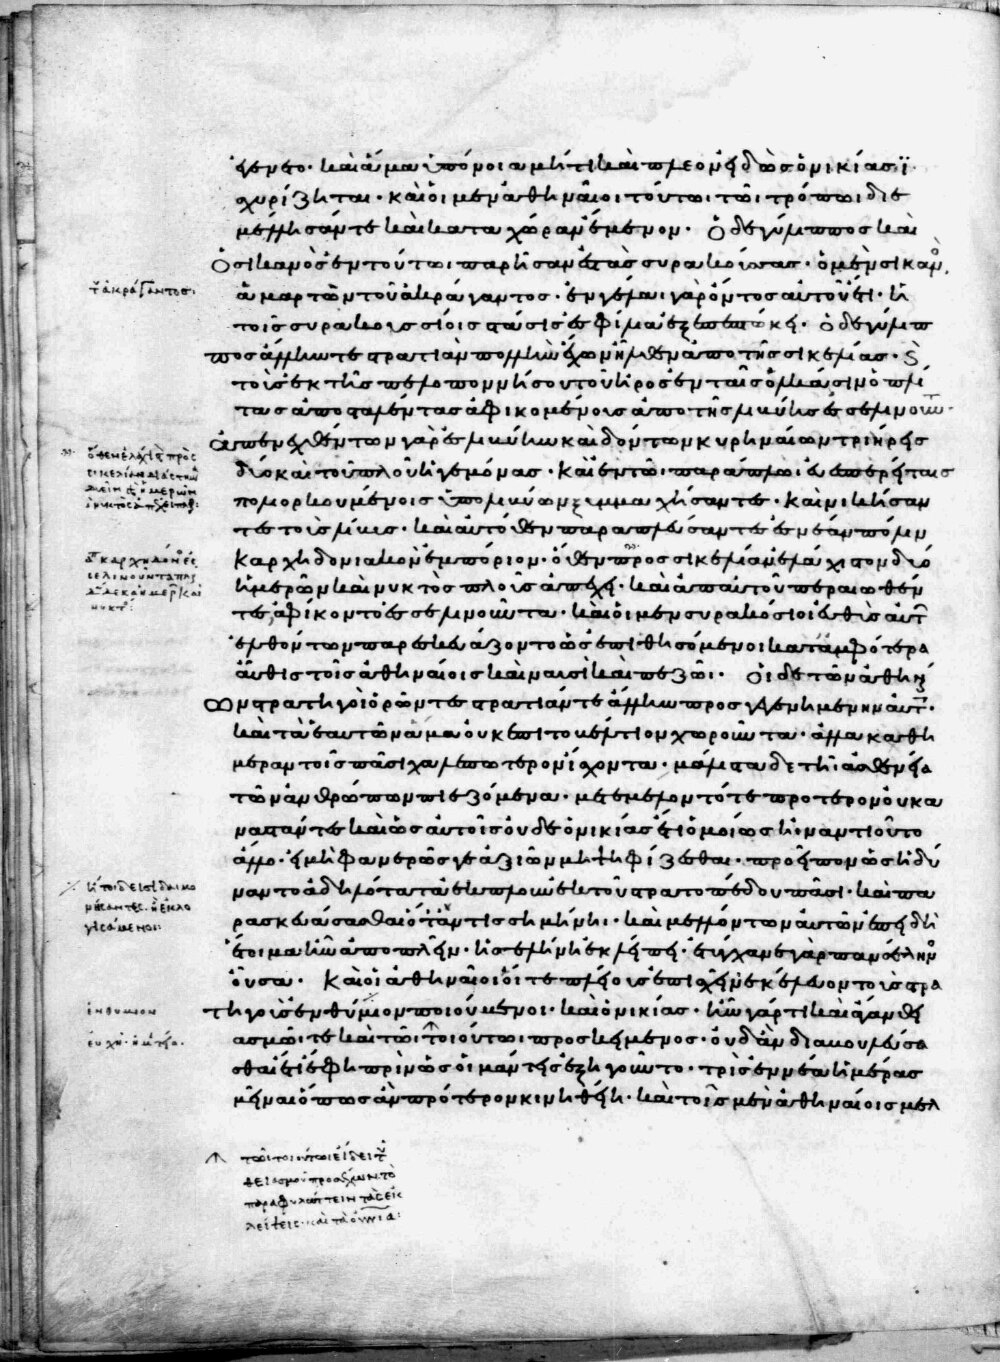 ἐγένετο· καὶ ἅμα ὑπόνοια μή τι καὶ πλέον εἰδὼς ὁ νικίας ἰ
σχυρίζηται· καὶ οἱ μὲν ἀθηναῖοι τούτωι τῶι τρόπωι διε
μέλλησάν τε καὶ κατα χώραν ἔμενον· Ὁ δὲ γύλιππος καὶ
ὁ σικανὸς ἐν τούτωι παρῆσαν ἐς τὰς συρακούσας· ὁ μὲν σικανὸ
ἁμαρτὼν τοῦ ἀκράγαντος· ἐν γέλαι γὰρ ὄντος αὐτοῦ ἔτι· ἡ
τοῖς συρακουσσίοις στάσις ἐς φίλια ἐξεπεπτώκει· ὁ δὲ γύλιπ
πος ἄλλην τε στρατιὰν πολλὴν ἔχων ἦλθεν ἀπὸ τῆς σικελίας· κ
τοὺς ἐκ τῆς πελοποννήσου τοῦ ἦρος ἐν ταῖς ὁλκάσιν ὁπλί
τας ἀποσταλέντας ἀφικομένους ἀπὸ τῆς λιβύης ἐς σελινοῦντ·
ἀπενεχθέντων γὰρ ἐς λιβύην καὶ δόντων κυρηναίων τριήρεις
δύο καὶ τοῦ πλοῦ ἡγεμόνας· καὶ ἐν τῶι παράπλωι εὐεσπερίταις
πολιορκουμένοις ὑπὸ λιβύων ξυμμαχήσαντες· καὶ νικήσαν
τες τοὺς λίβυς· καὶ αὐτόθεν παραπλεύσαντες ἐς νέαν πόλιν
καρχηδονιακὸν ἐμπόριον· ὅθεν πρὸς σικελίαν ἐλάχιστον δύο
ἡμερῶν καὶ νυκτὸς πλοῦς ἀπέχει· καὶ ἀπ αὐτοῦ περαιωθέν
τες, ἀφίκοντο ἐς σελινοῦντα· καὶ οἱ μὲν συρακόσιοι εὐθὺς αὐτ
ἐλθόντων παρεσκευάζοντο ὡς ἐπιθησόμενοι κατ ἀμφότερα
αὖθις τοῖς ἀθηναίοις καὶ ναυσὶ καὶ πεζῶι· οἱ δὲ τῶν ἀθηναί
ων στρατηγοὶ ὁρῶντες στρατιάν τε ἄλλην προσγεγενημένην αὐτ·
καὶ τὰ ἑαυτῶν ἅμα οὐκ ἐπὶ το βέλτιον χωροῦντα· ἀλλα καθ ἡ
μέραν τοῖς πᾶσι χαλεπώτερον ἴσχοντα· μάλιστα δε τῆι ἀσθενείαι
τῶν ἀνθρώπων πιεζόμενα· μετεμέλοντό τε πρότερον οὐκ ἀ
ναστάντες καὶ ὡς αὐτοῖς οὐδὲ ὁ νικίας ἔτι ὁμοίως ἠναντιοῦτο
ἀλλο· εἰ μὴ φανερῶς γε ἀξιῶν μὴ ψηφίζεσθαι· προεῖπον ὡς ἠδύ
ναντο ἀδηλότατα ἔκπλουν ἐκ τοῦ στρατοπέδου πᾶσι· καὶ πα
ρασκευάσασθαι ὅταν τις σημήνηι· καὶ μελλόντων αὐτῶν ἐπειδὴ
ἑτοῖμα ἦν ἀποπλεῖν· ἡ σελήνη ἐκλείπει· ἐτύγχανε γὰρ πανσέληνο
οὖσα· καὶ οἱ ἀθηναῖοι οἵ τε πλείους ἐπισχεῖν ἐκέλευον τοὺς στρα
τηγοὺς ἐνθύμιον ποιούμενοι· καὶ ὁ νικίας· ἦν γάρ τι καὶ ἄγαν θει
ασμῶι τε καὶ τῶι τοιούτωι προσκείμενος· οὐδ ἂν διαβουλεύσα
σθαι ἔτι ἔφη πρὶν ὡς οἱ μάντεις ἐξηγοῦντο· τρὶς ἐννέα ἡμέρας
μεῖναι ὅπως ἂν πρότερον κινηθείη· καὶ τοῖς μὲν ἀθηναίοις μελ
ἀκράγαντος·
ἐνθύμιον
τῶι τοιούτωι εἴδει τ
θειασμοῦ προσέχων τὸ
παραφυλάττειν τὰς ἐκ
λείψεις· καὶ τὰ